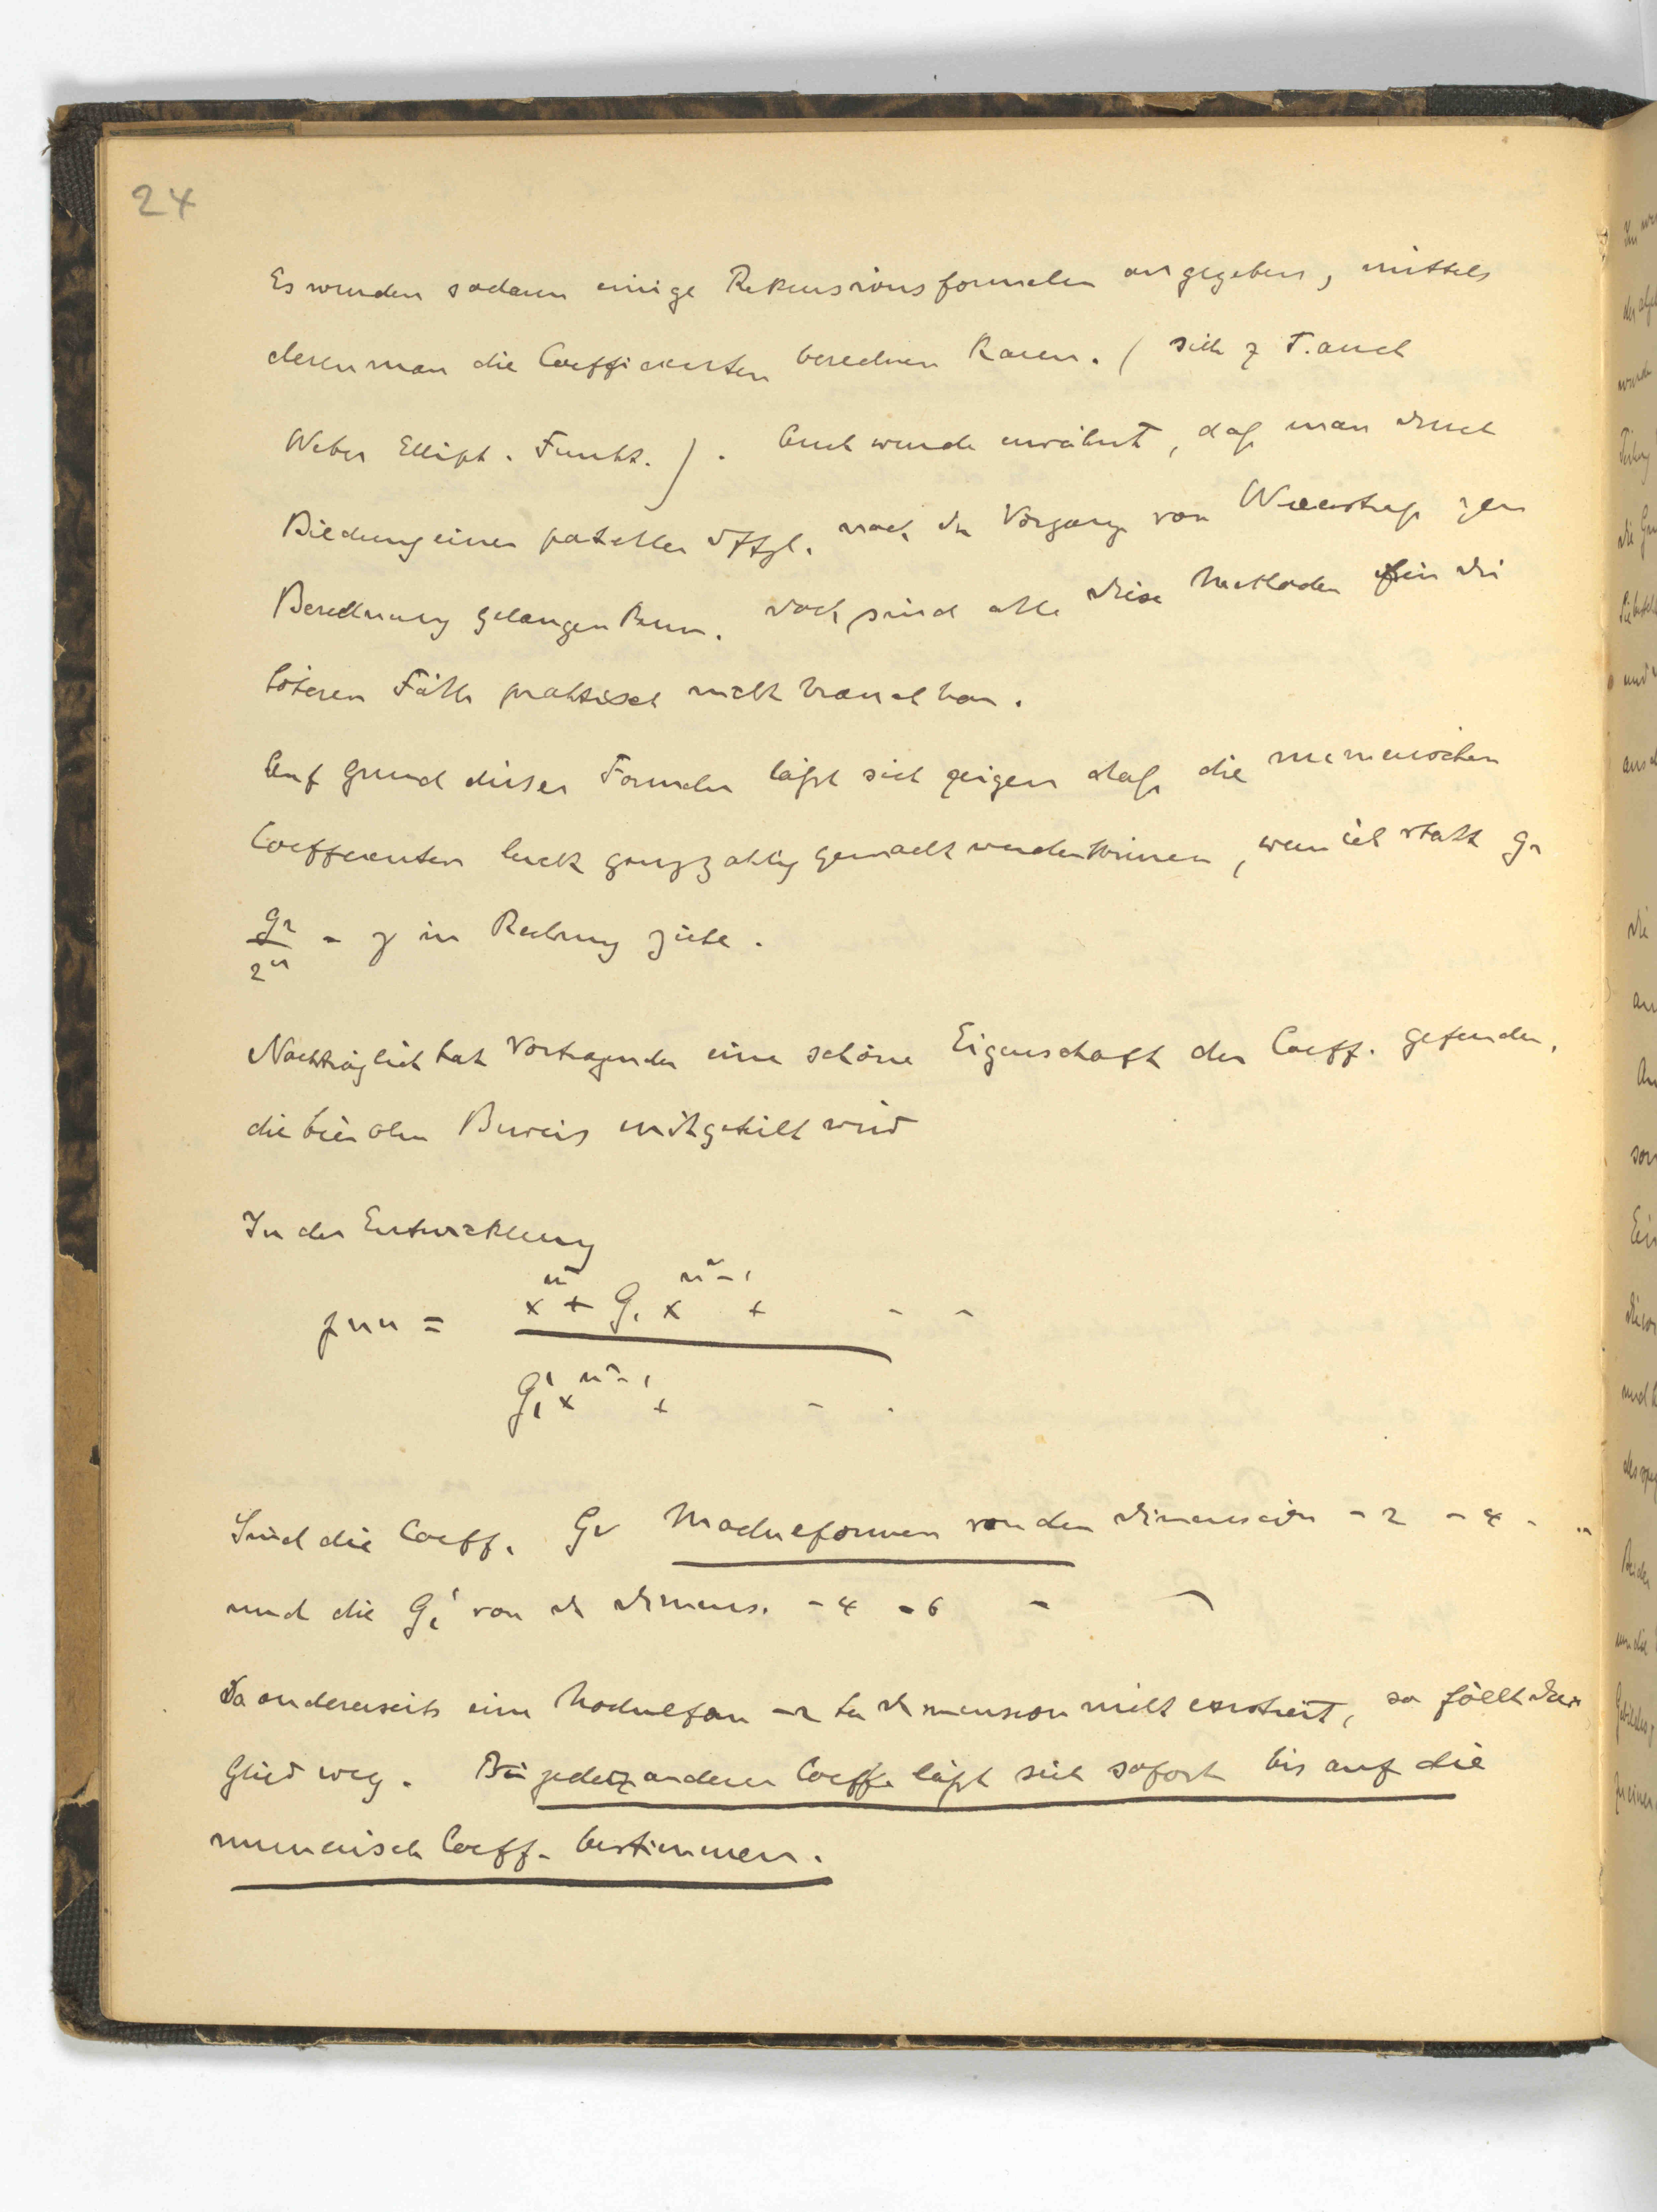 24
Es wurden sodann einige Rekursionsformeln angegeben, mittels
deren man die Coefficienten berechnen kann. ( sieh z T. auch
Weber Ellipt. Funkt. ) . Auch wurde erwähnt, daß man durch
Bildung einer partiellen Dffgl. nach dem Vorgang von Weierstraß zur
Berechnung gelangen kann. Doch sind alle diese Methoden für die
höheren Fälle praktisch nicht brauchbar.
Auf Grund dieser Formeln läßt sich zeigen daß die numerischen
Coefficienten leicht ganzzahlig gemacht werden können, wenn ich statt g₂
g₂/2ⁿ = γ in Rechnung ziehe.
Nachträglich hat Vortragender eine schöne Eigenschaft der Coeff. gefunden,
die hier ohne Beweis mitgeteilt wird
In der Entwicklung
x^{n²} + G₁ x^{n²-1} + - -
℘nu =
G₁' x^{n²-1} + - .
Sind die Coeff. Gν Modulformen von den Dimension -2 -4 - ..
und die Gi' von der Dimens. -4 -6 - -
Da andererseits eine Modulform -2 ter Dimension nicht existiert, so fällt das
Glied weg. Die jedes anderen Coeff. läßt sich sofort bis auf die
numerisch Coeff. bestimmen.